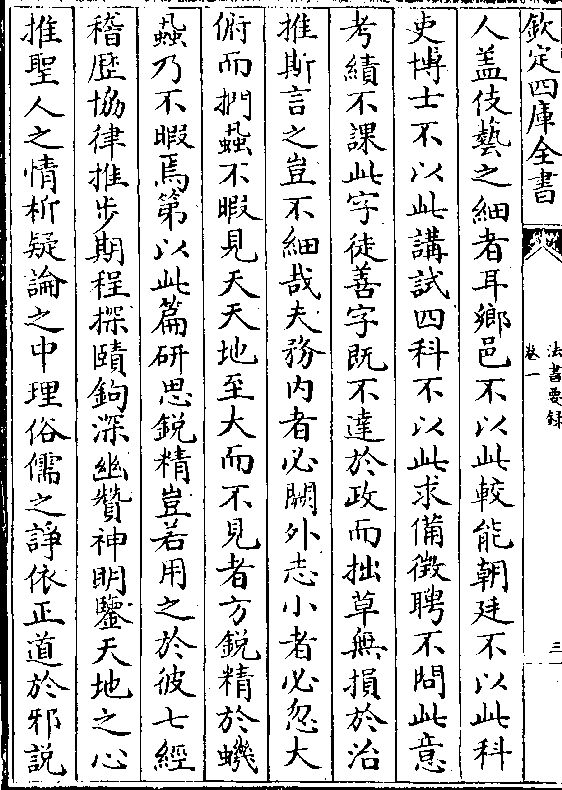 欽定四庫全書
法書要録
卷一
三
人盖伎藝之細者耳鄉邑不以此較能朝廷不以此科
吏博士不以此講試四科不以此求備徴聘不問此意
考績不課此字徒善字既不達於政而拙草無損於治
推斯言之豈不細哉夫務内者必闕外志小者必忽大
俯而捫蝨不暇見天天地至大而不見者方鋭精於蟣
蝨乃不暇焉第以此篇研思鋭精豈若用之於彼七經
稽歴協律推步期程探賾鉤深幽贊神明鑒天地之心
推聖人之情析疑論之中理俗儒之諍依正道於邪説